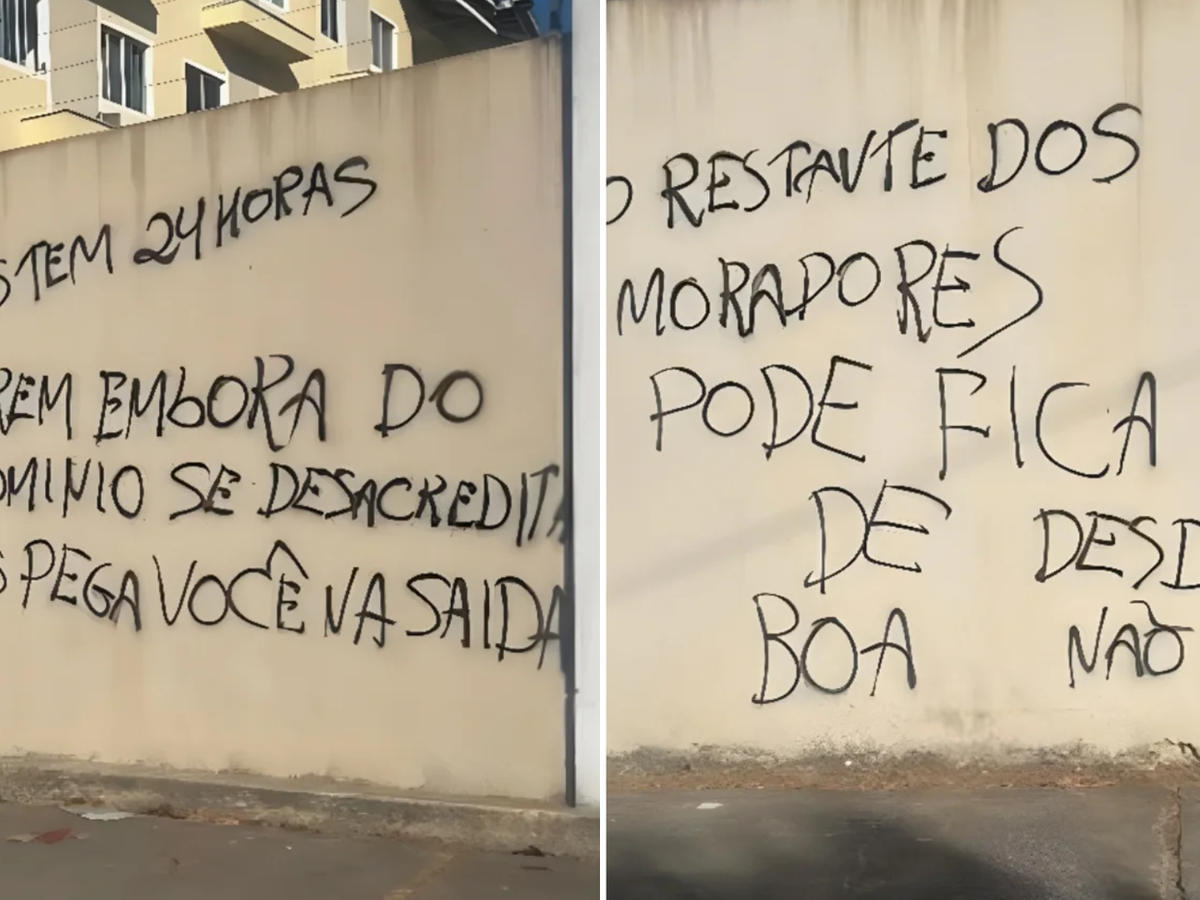 S TEM 24 HORAS
REM EMbORA DO
OMINIO SE DESACREDITA
S PEGA VOCÊ NA SAIDA
O RESTANTE DOS
MORADORES
PODE FICA
DE DESD
BOA NÃO